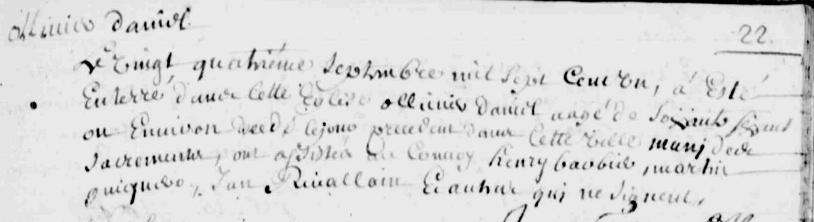 ollivier daniel
22
Le vingt quatrieme septembre mil sept cent un, a Esté
Enterré dans cette Eglise ollivier daniel aagé de soixante
ou Environ decedé le jour precedent dans cette ville muni de
sacrements, ont assistés au Convoy henry barbier, martin
Jan Rivallain Et autres qui ne signent,